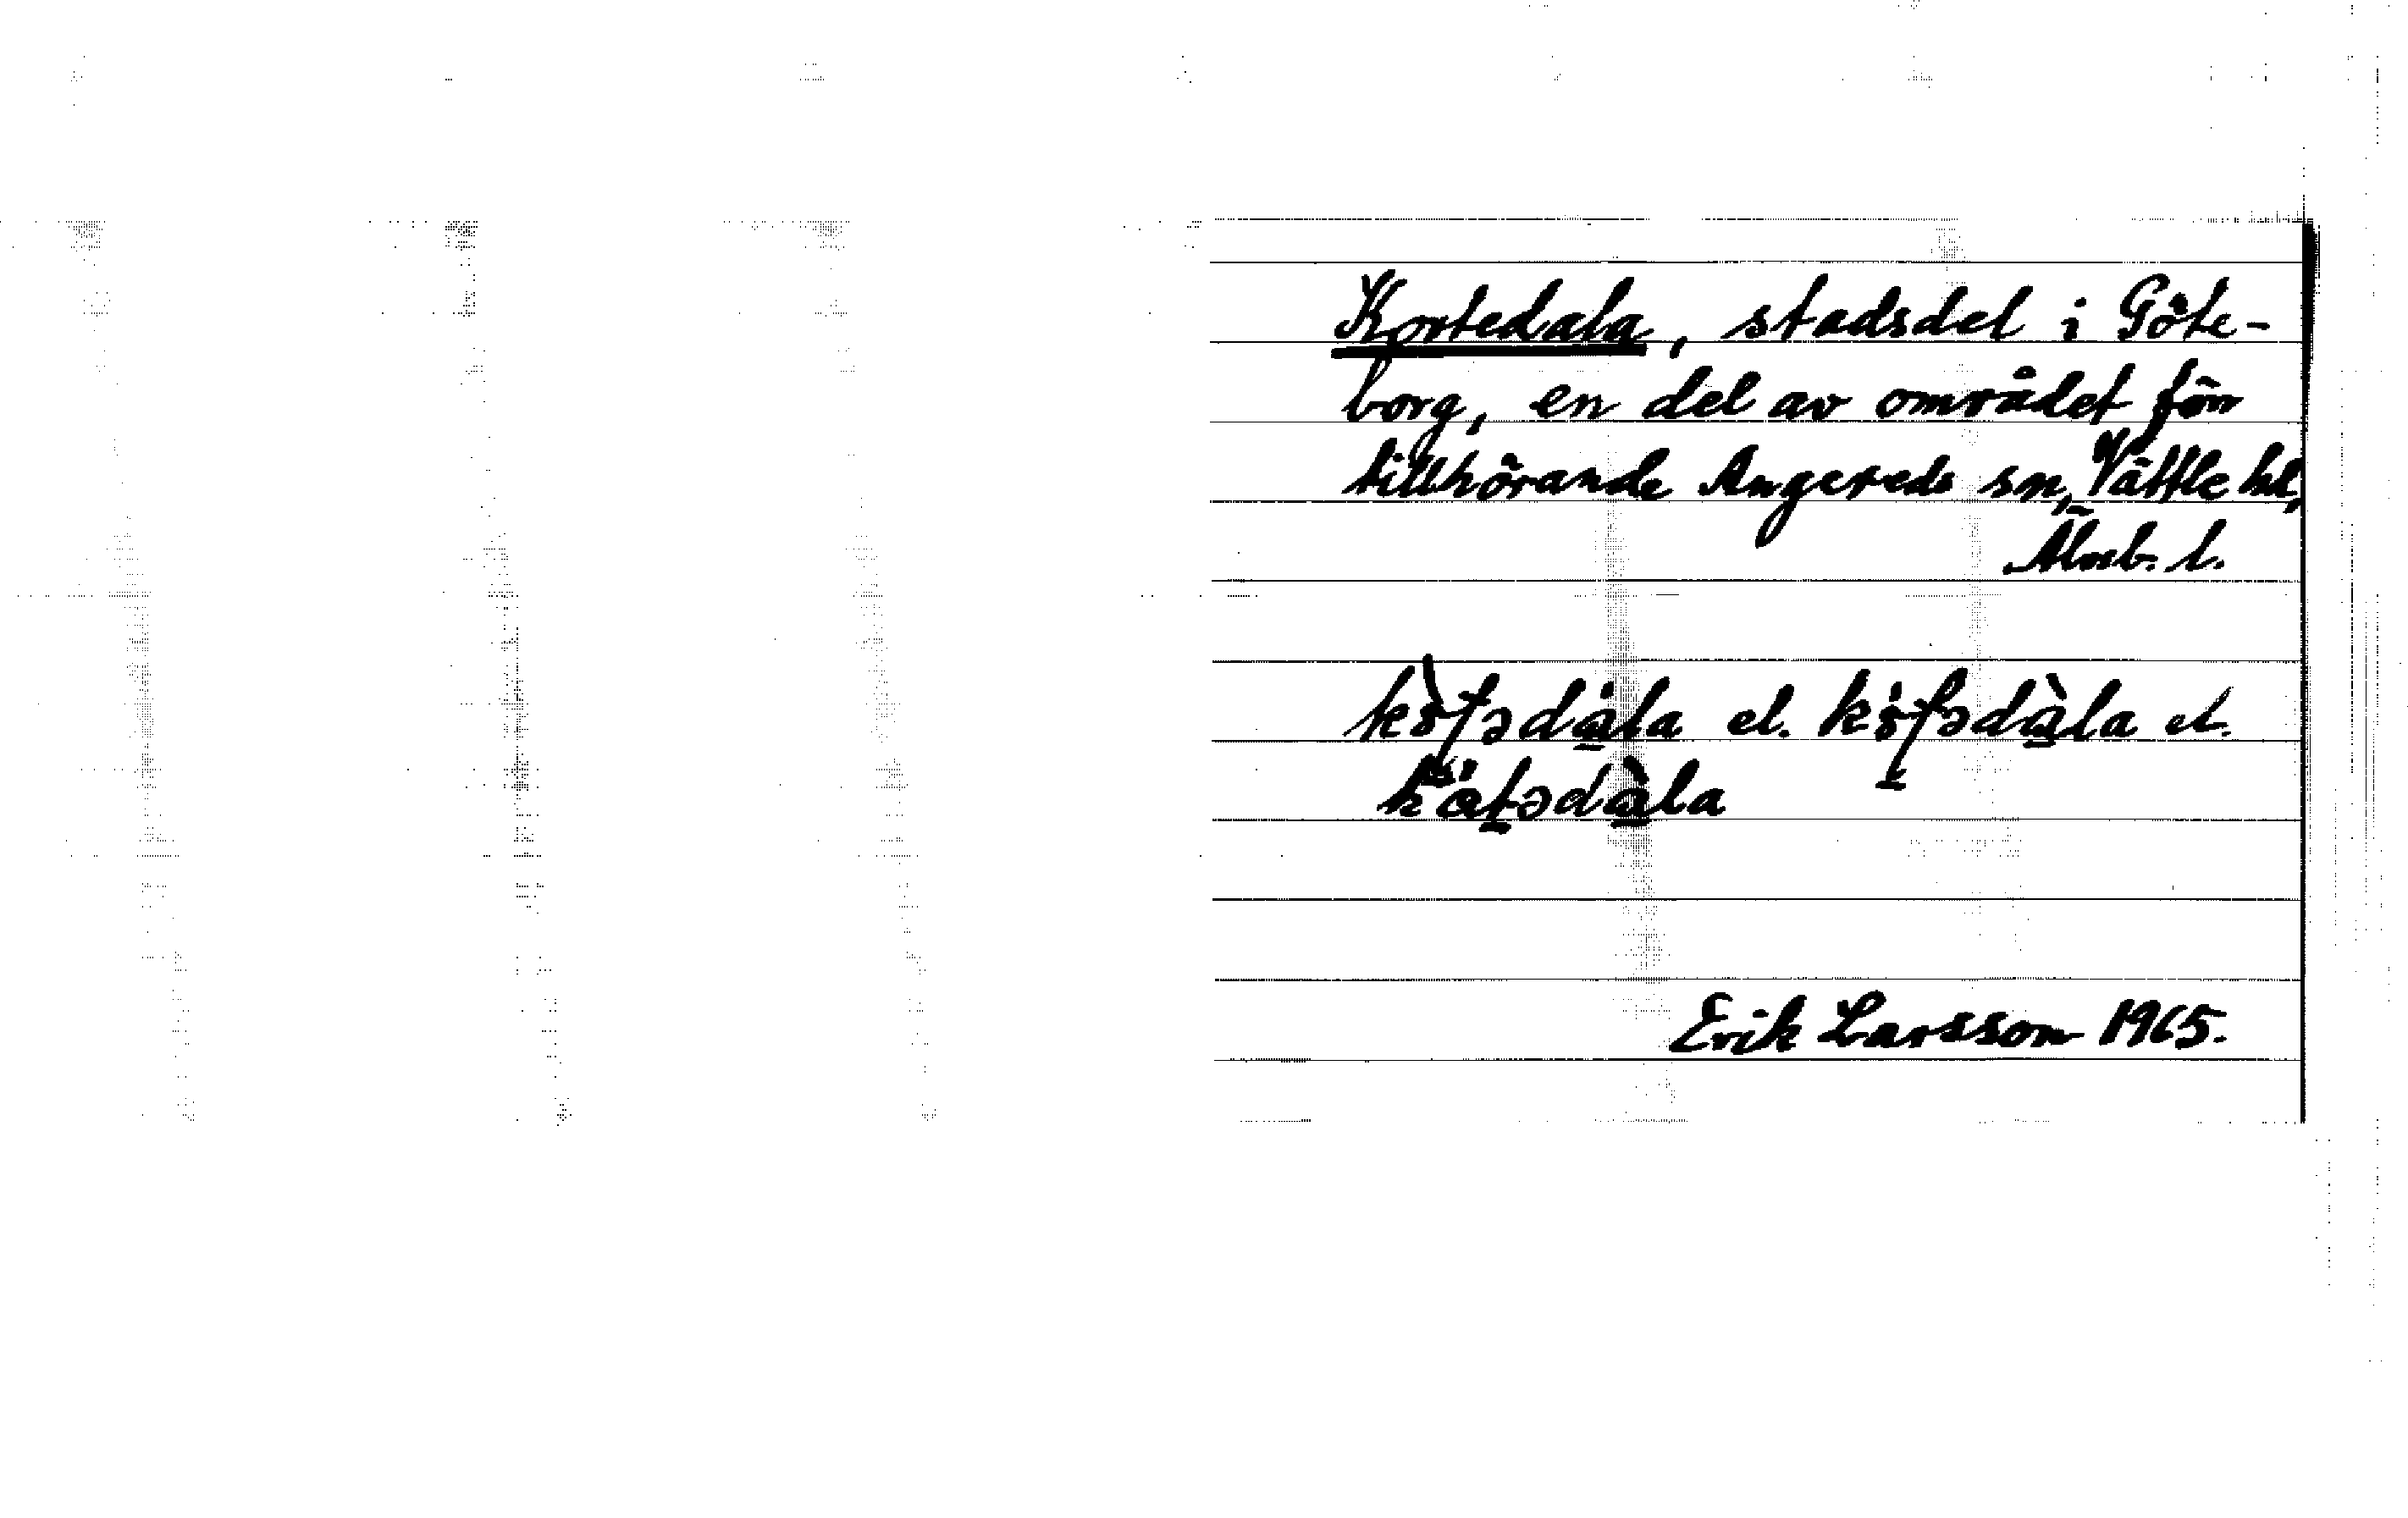 Kortedala, stadsdel i Göte-
borg, en del av området förr
tillhörande Angereds sn, Vättle hd,
Älvsb. l.
el. el.
Erik Larsson 1965.